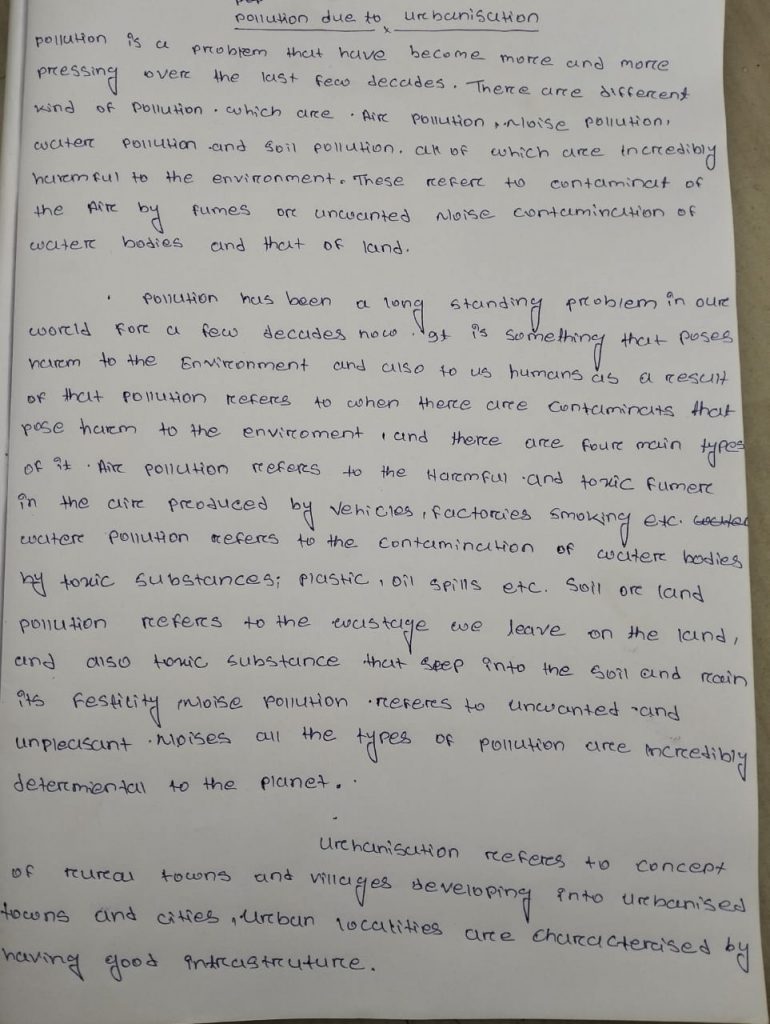 pollution due to urbanisation
pollution is a problem that have become more and more
pressing over the last few decades. There are different
kind of pollution. which are. Air pollution, Noise pollution,
water pollution and soil pollution. all of which are incredibly
harmful to the environment. These refer to contaminat of
the Air by fumes or unwanted Noise contamination of
water bodies and that of land.
pollution has been a long standing problem in our
world for a few decades now. It is something that poses
harm to the Environment and also to us humans as a result
of that pollution refers to when there are contaminats that
pose harm to the enviroment, and there are four main types
of it. Air pollution refers to the Harmful and toxic fumer
in the air produced by vehicles, factories smoking etc.
water pollution refers to the contamination of water bodies
by toxic substances; plastic, oil spills etc. Soil or land
pollution refers to the wastage we leave on the land,
and also toxic substance that seep into the soil and rain
its festility Noise pollution refers to unwanted and
unpleasant. Noises all the types of pollution are incredibly
determiental to the planet.
Urbanisation refers to concept
of rural towns and villages developing into urbanised
towns and cities, urban localities are characterised by
having good intrastruture.